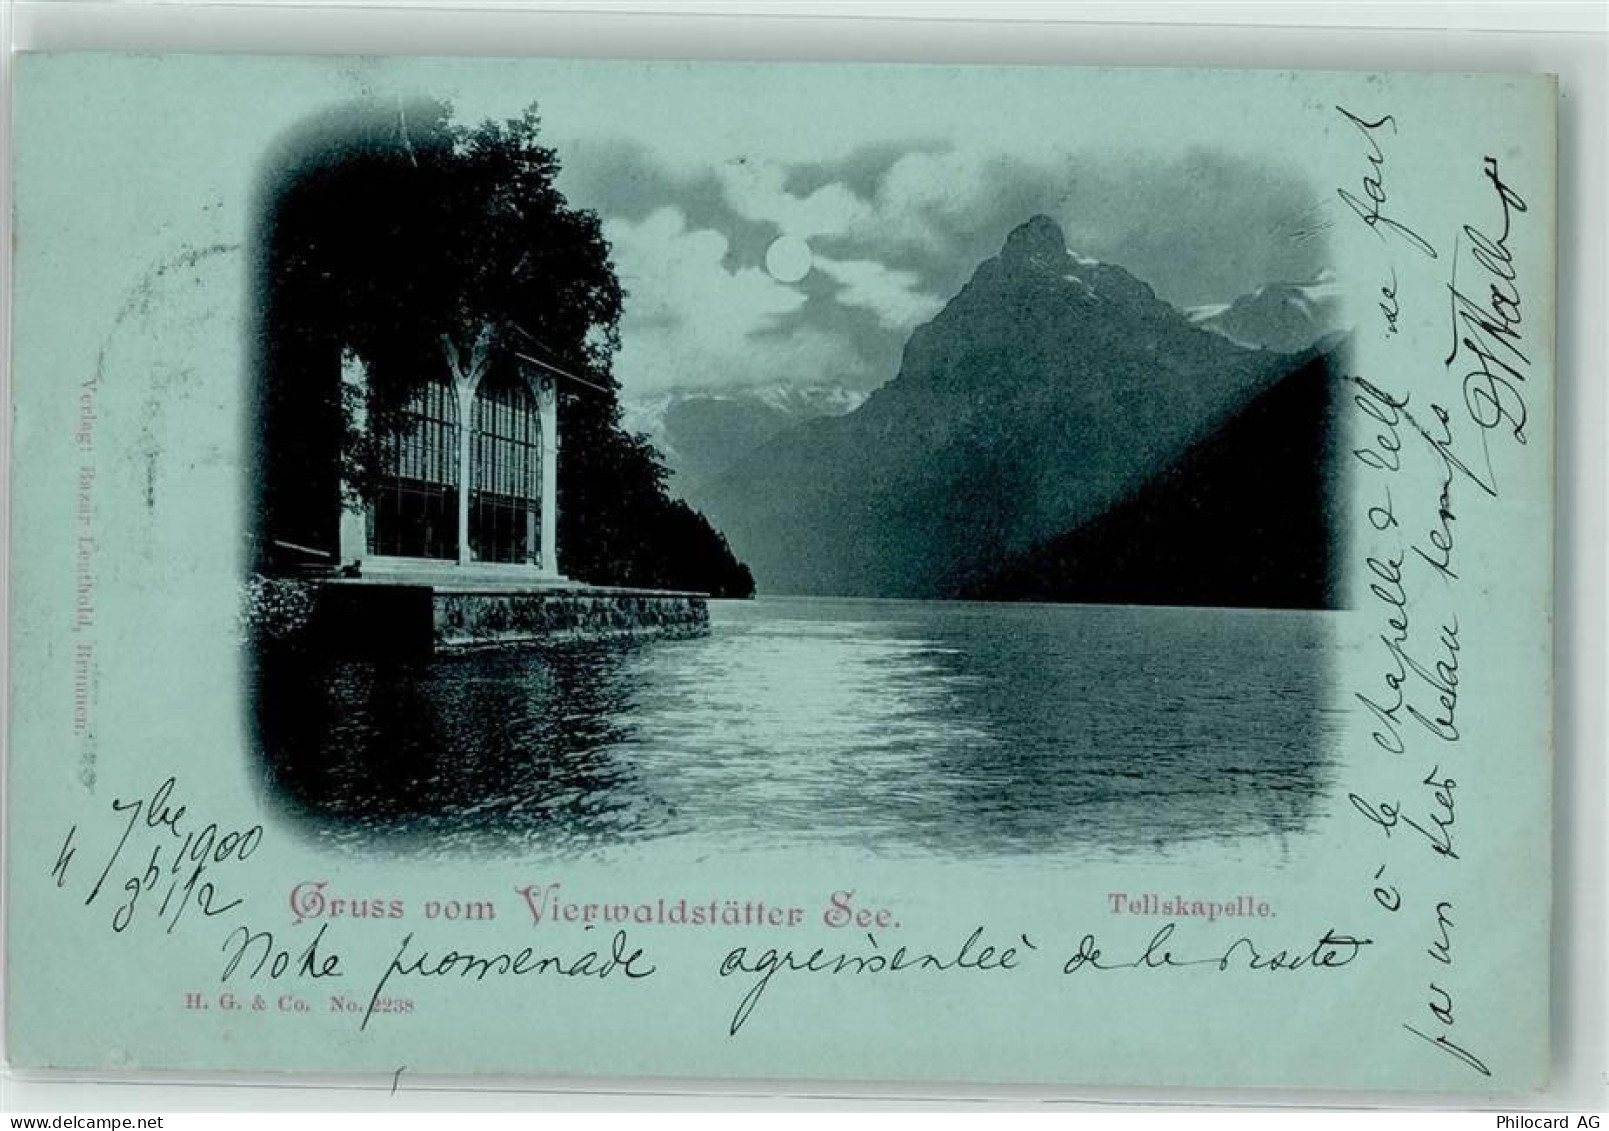 Verlag: Bazar Leuthold, Brunnen.
4 7bre 1900
9h 1/2
Gruss vom Vierwaldstätter See.
Tellskapelle.
Notre promenade agrémentée de la visite
H. G. & Co. No. 2238
à la chapelle d Tell se fait
par un très beau temps